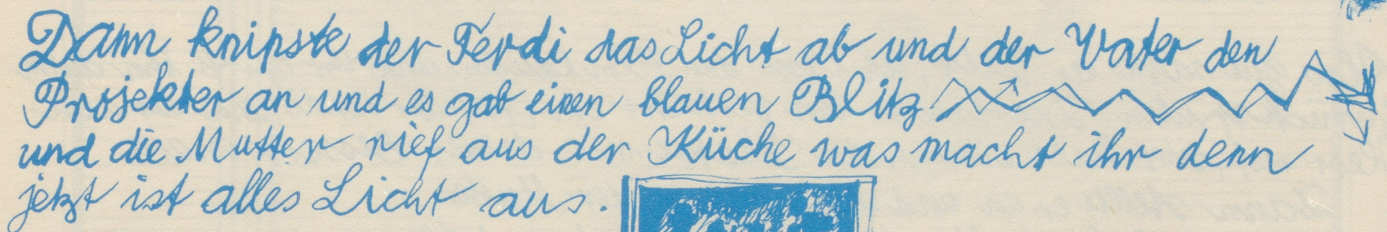 Dann knipste der Ferdi das Licht ab und der Vater den
Projekter an und es gab einen blauen Blitz
und die Mutter rief aus der Küche was macht ihr denn
jetzt ist alles Licht aus.